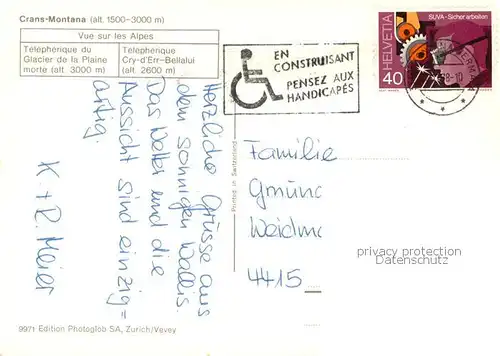 Crans-Montana (alt. 1500–3000 m)
Vue sur les Alpes
Téléphérique du
Glacier de la Plaine
morte (alt. 3000 m)
Téléphérique
Cry-d'Err-Bellalui
(alt. 2600 m)
EN
CONSTRUISANT
PENSEZ AUX
HANDICAPÉS
SUVA - Sicher arbeiten
HELVETIA
40
Herzliche Grüsse aus
dem sonnigen Wallis.
Das Wetter und die
Aussicht sind einzig=
artig.
K + R. Meier
Printed in Switzerland
Familie
Gmünd
Weidma
4415
privacy protection
Datenschutz
9971 Edition Photoglob SA, Zurich/Vevey